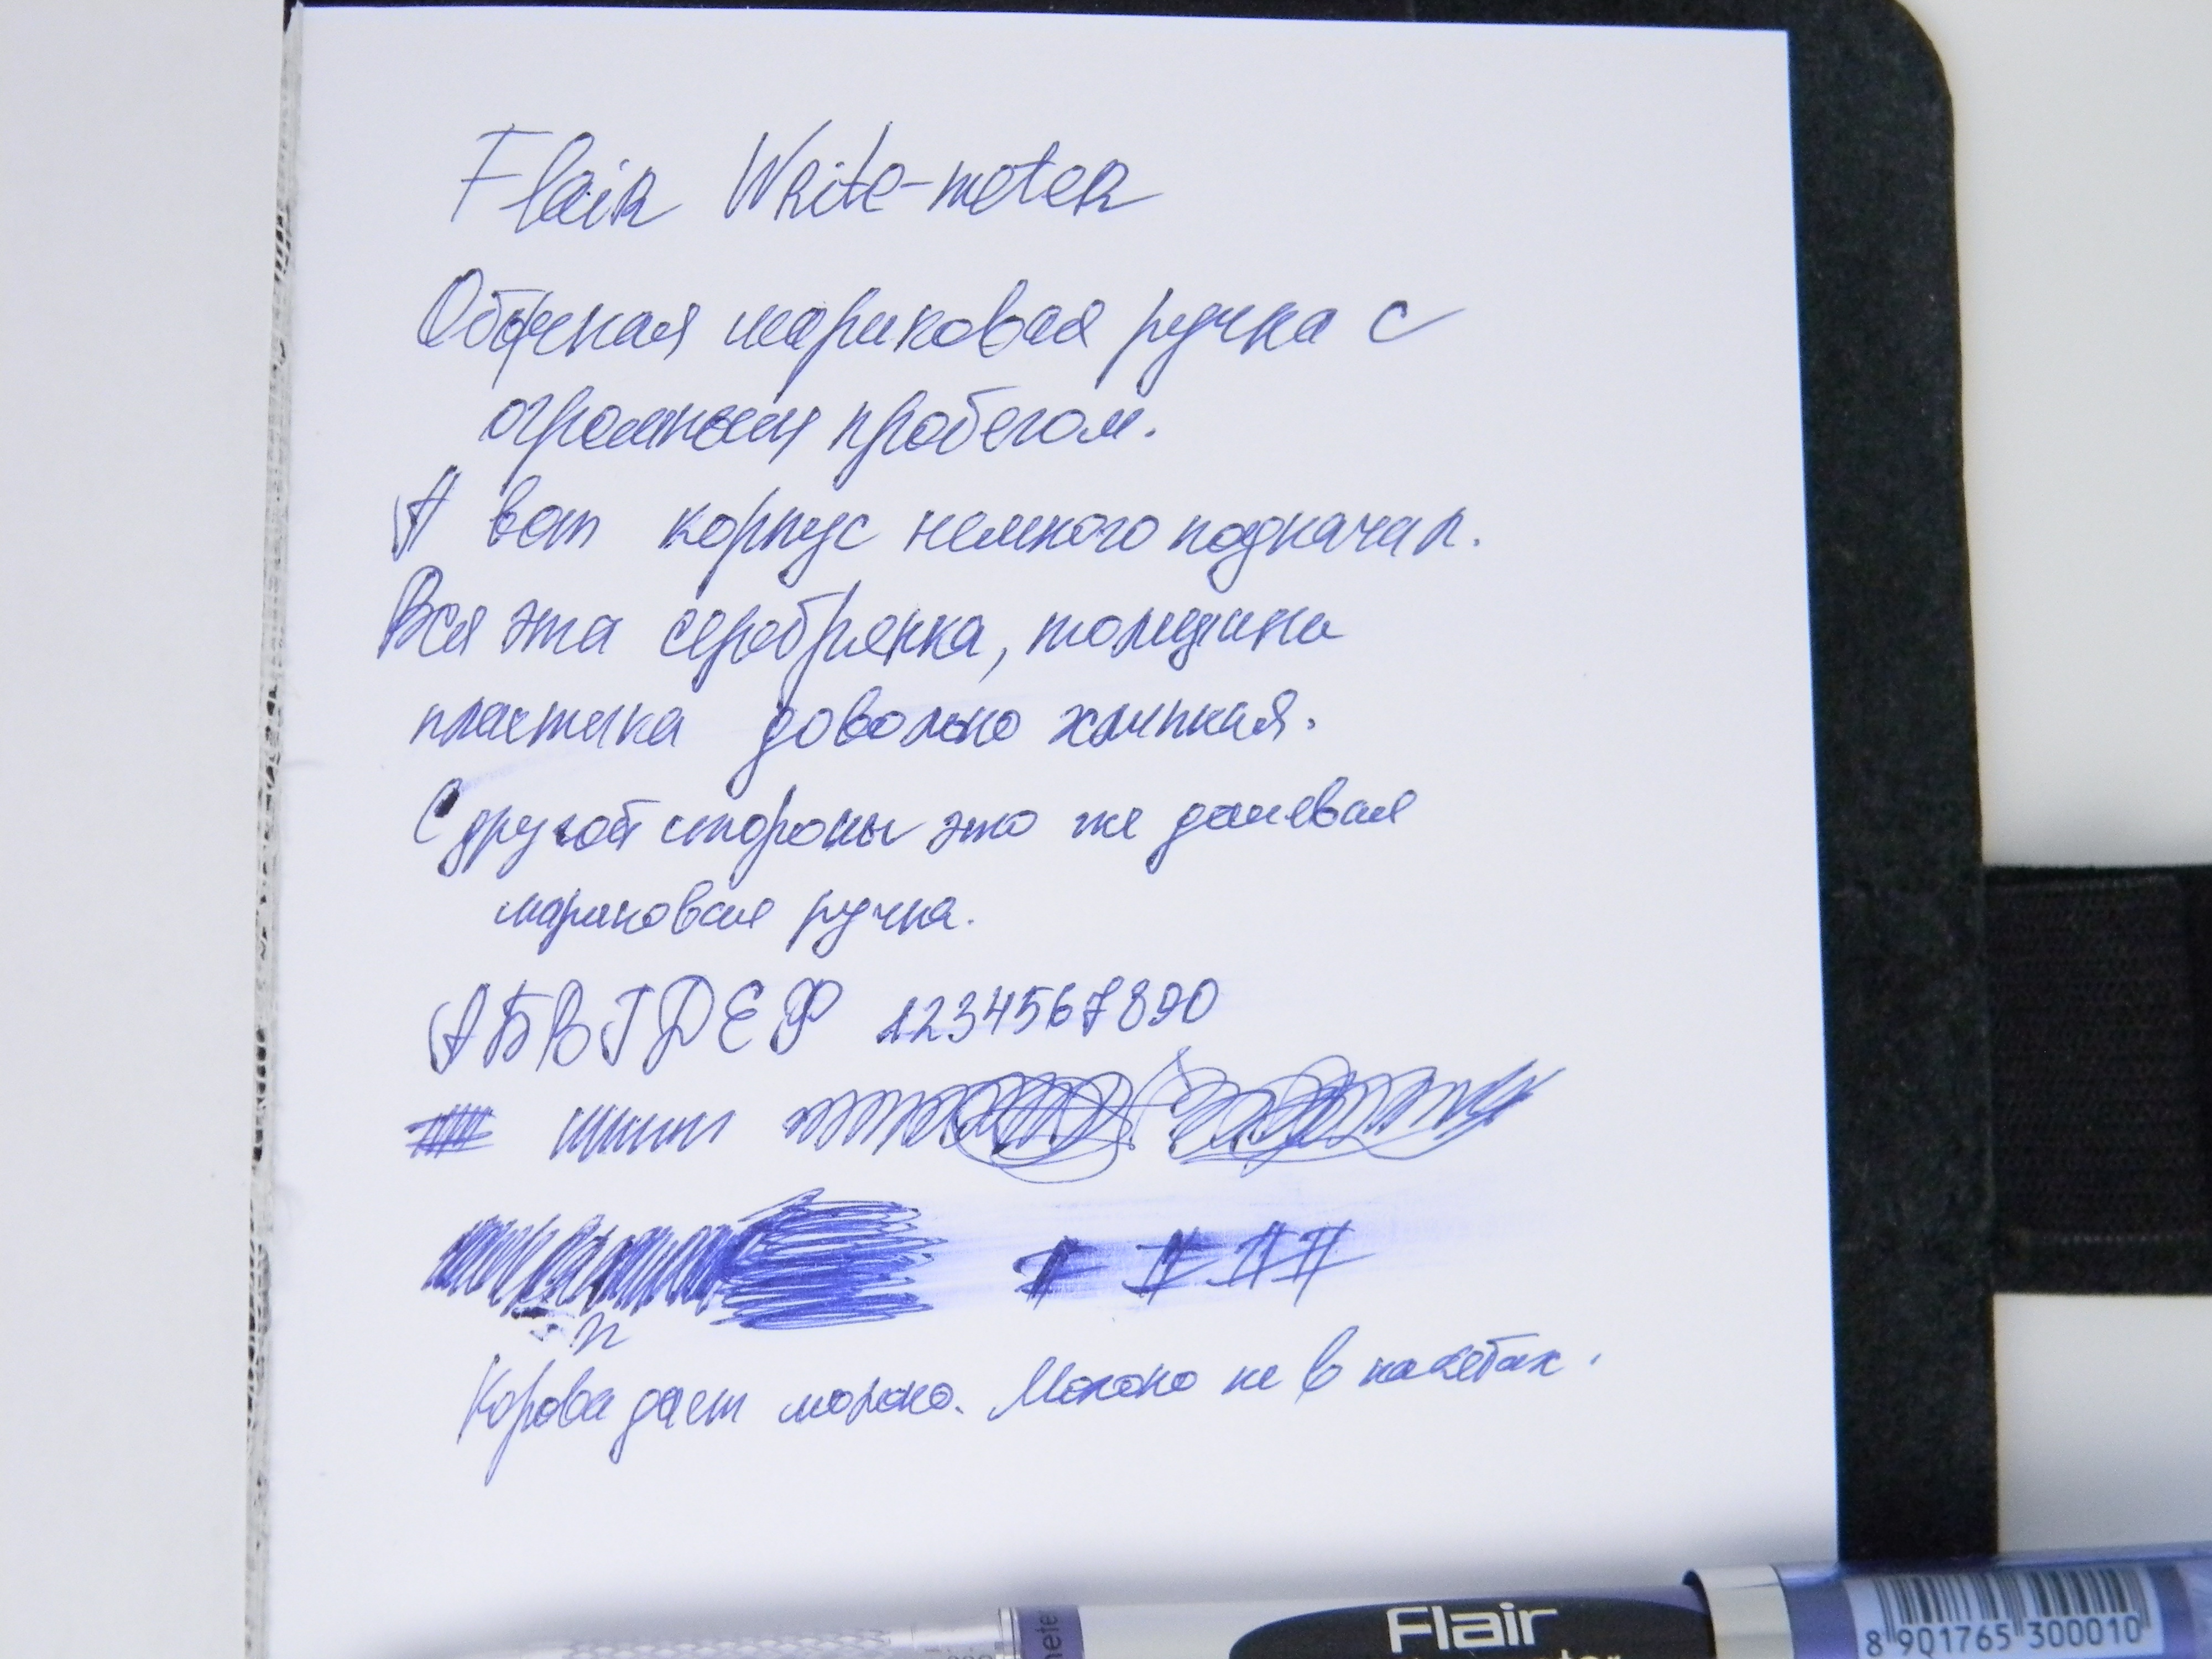 Flair Write-meter
Обычная шариковая ручка с
огромным пробегом.
А вот корпус немного подкачал.
Вся эта серебрянка, толщина
пластика довольно хлипкая.
С другой стороны это же дешевая
шариковая ручка.
АБВГДЕФ 1234567890
Корова дает молоко. Молоко не в пакетах.
Flair
8 901765 300010